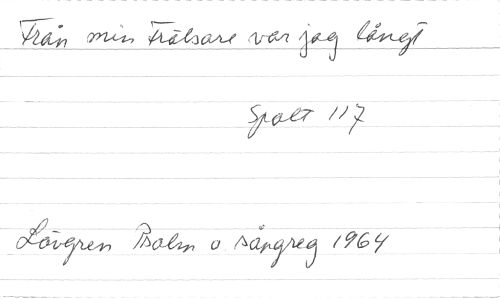 Från min Frälsare var jag långt
Spalt 117
Lövgren Psalm o sångreg 1964